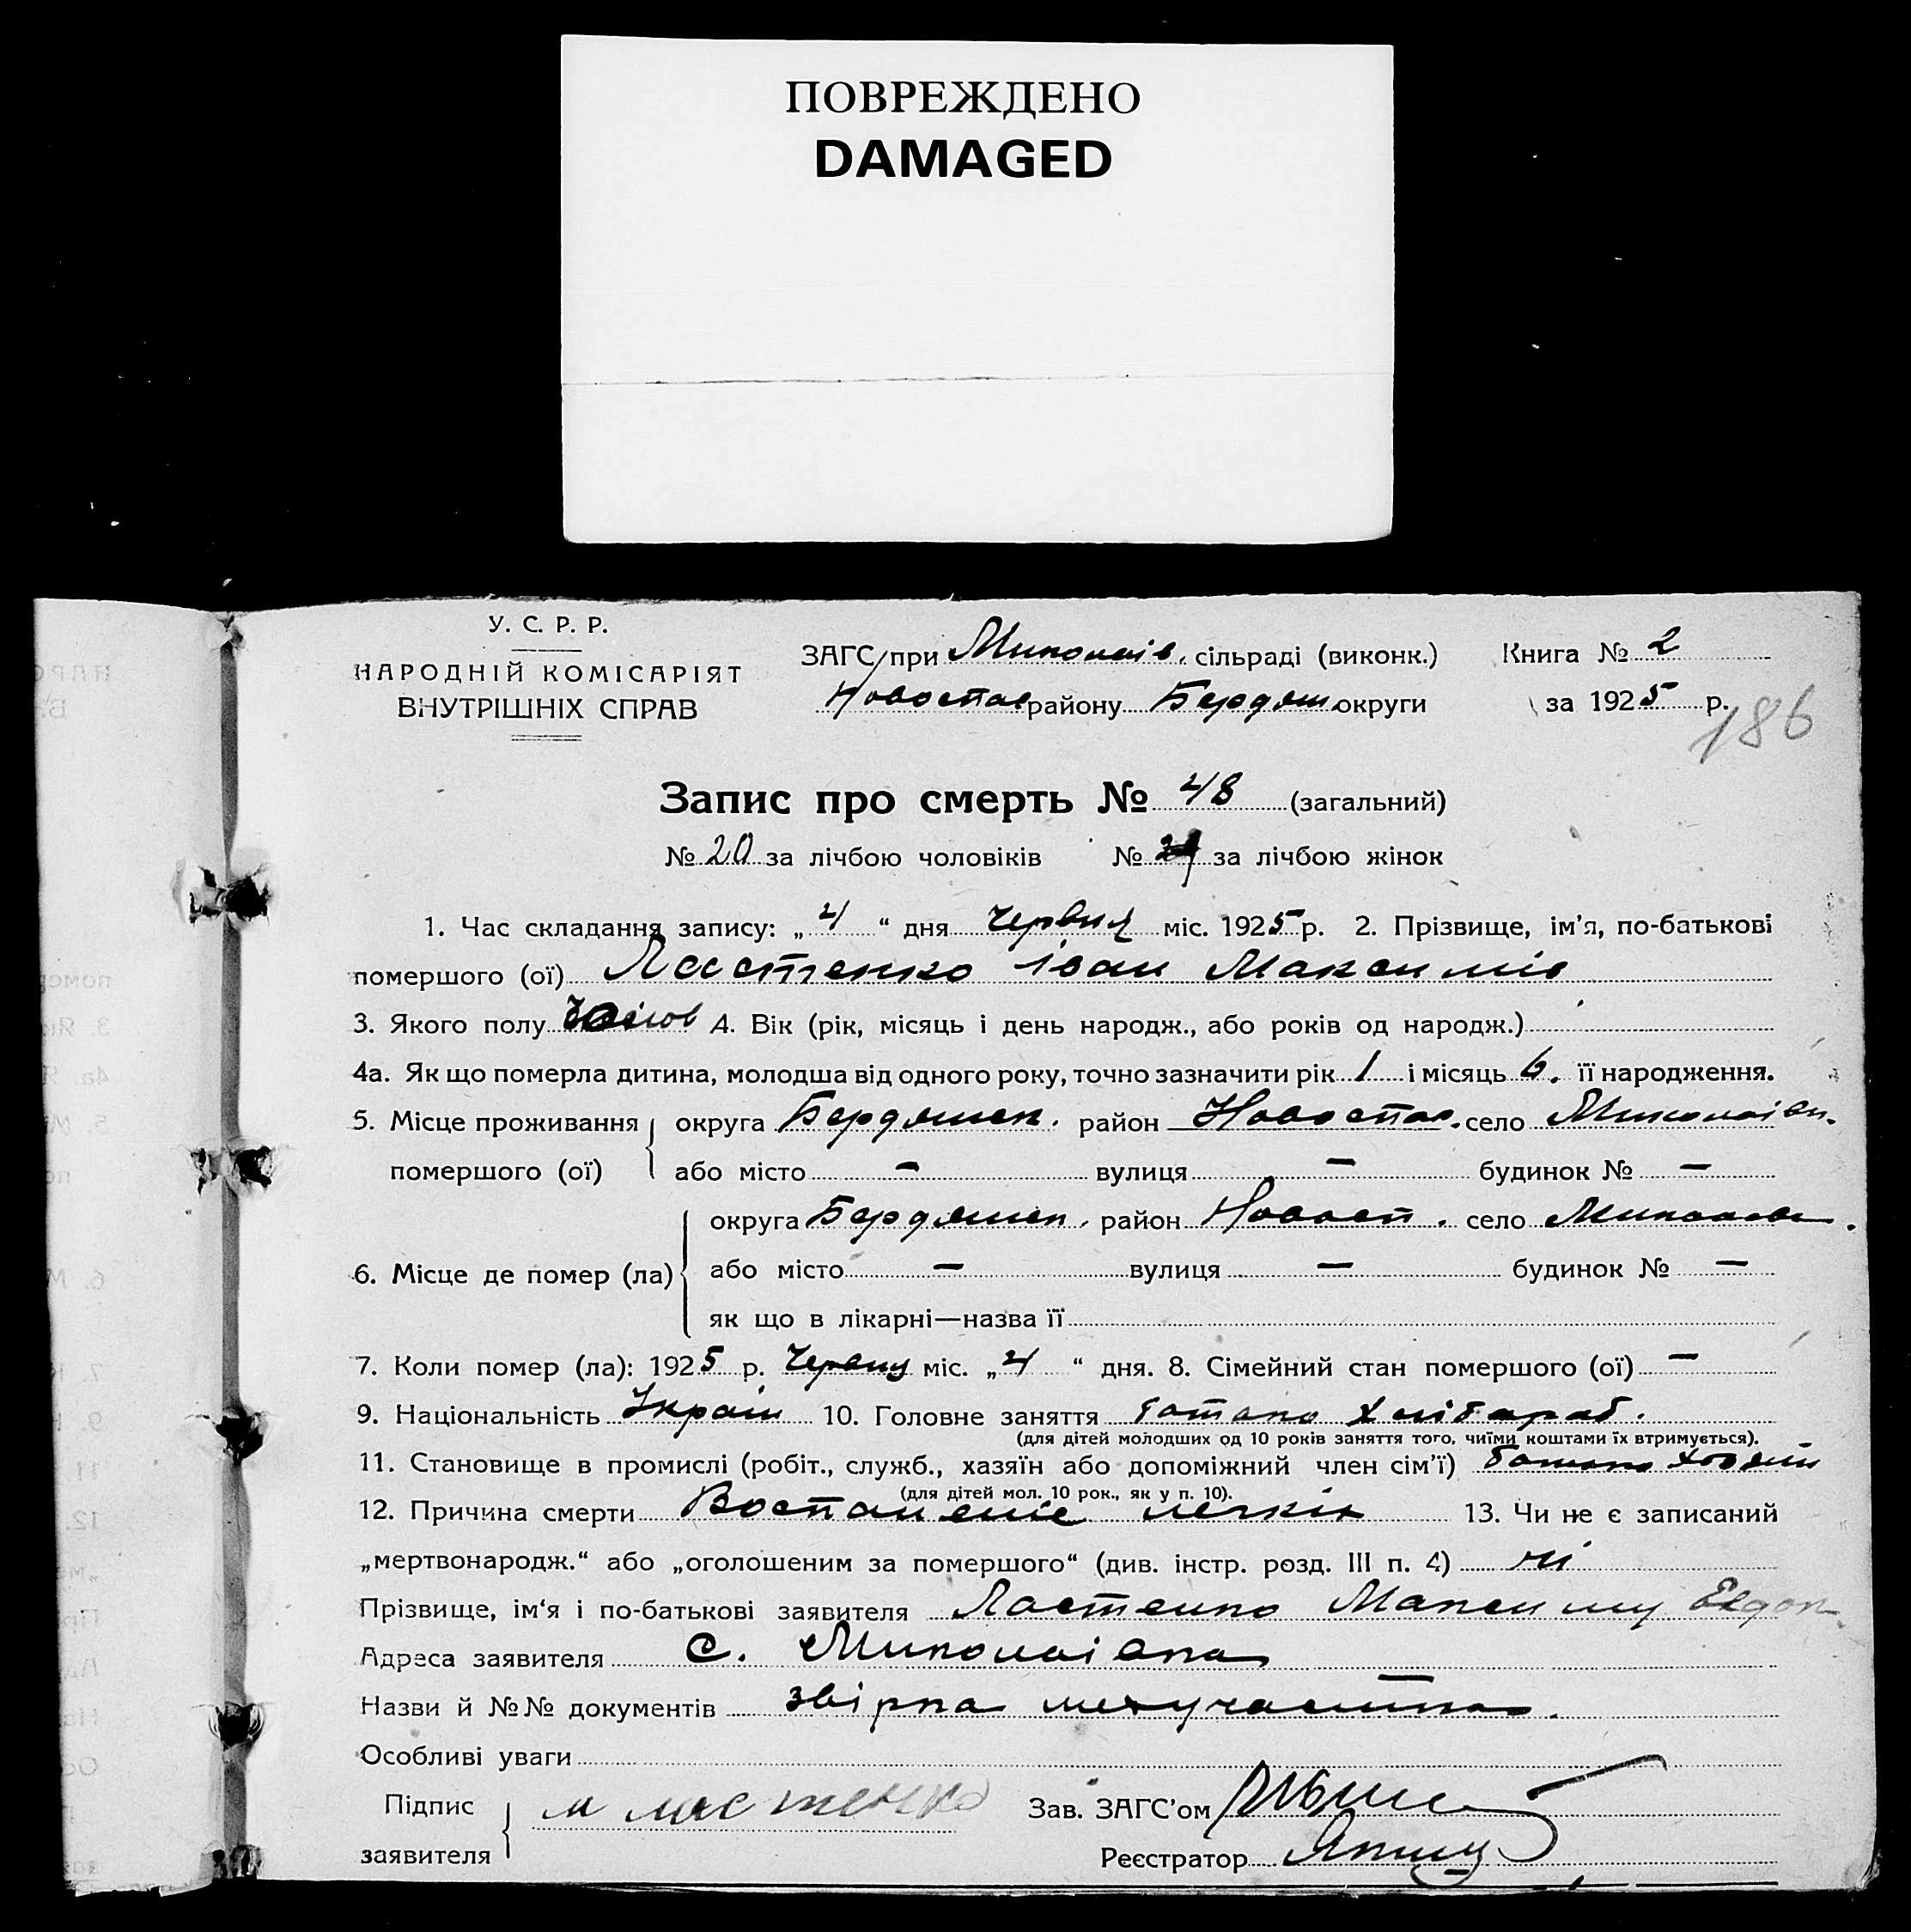 ПОВРЕЖДЕНО
DAMAGED
У. С. Р. Р.
НАРОДНІЙ КОМІСАРІЯТ
ВНУТРІШНІХ СПРАВ
ЗАГС при Миколаїв. сільраді (виконк.)
Новоспас району Бердянськ округи
Книга № 2
за 1925 р.
186
Запис про смерть № 48 (загальний)
№ 20 за лічбою чоловіків № за лічбою жінок
1. Час складання запису: „4“ дня Червня міс. 1925 р. 2. Прізвище, ім'я, по-батькові
помершого (ої) Ластенко Іван Максимів
3. Якого полу Чолов 4. Вік (рік, місяць і день народж., або років од народж.)
4а. Як що померла дитина, молодша від одного року, точно зазначити рік 1 і місяць 6. її народження.
5. Місце проживання округа Бердянськ. район Новоспас. село Миколаївк.
помершого (ої) або місто — вулиця — будинок № —
округа Бердянськ. район Новосп. село Миколаїв.
6. Місце де помер (ла) або місто — вулиця — будинок № —
як що в лікарні—назва її
7. Коли помер (ла): 1925 р. Червня міс. „4“ дня. 8. Сімейний стан помершого (ої) —
9. Національність Україн 10. Головне заняття Хлібороб.
(для дітей молодших од 10 років заняття того, чиїми коштами їх втримується).
11. Становище в промислі (робіт., служб., хазяїн або допоміжний член сім'ї)
(для дітей мол. 10 рок., як у п. 10).
12. Причина смерти Воспаленіє легкіх 13. Чи не є записаний
„мертвонародж.“ або „оголошеним за помершого“ (див. інстр. розд. III п. 4) ні
Прізвище, ім'я і по-батькові заявителя Ластенко Максим
Адреса заявителя с. Миколаївка
Назви й №№ документів
Особливі уваги
Підпис заявителя М Ластенко
Зав. ЗАГС'ом
Реєстратор